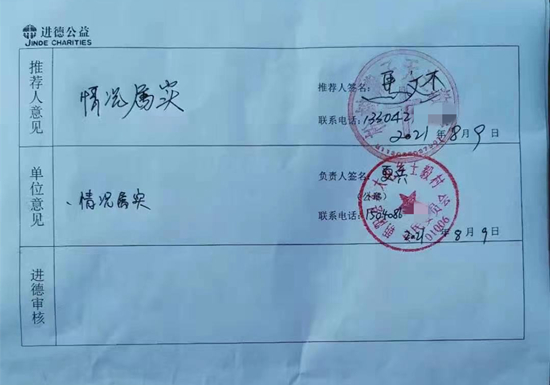 进德公益
JINDE CHARITIES
推荐人意见
情况属实
推荐人签名:
联系电话:133042
2021年8月9日
单位意见
情况属实
负责人签名:
联系电话:1504086
2021年8月9日
进德审核